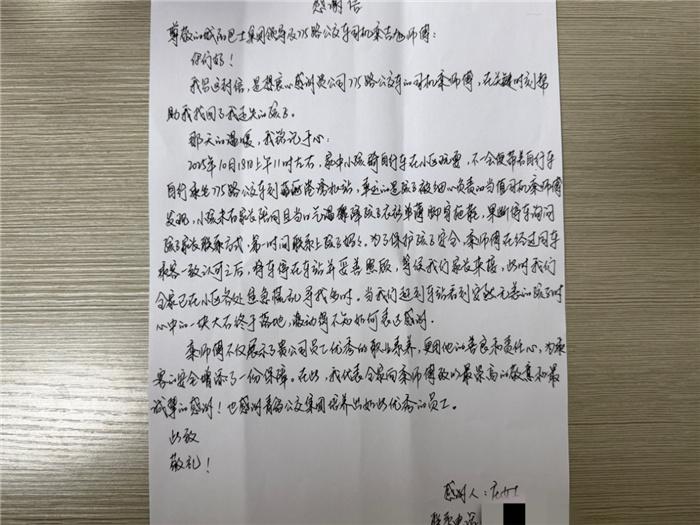 感谢信
尊敬的威尚巴士集团领导及775路公交车司机秦吉旭师傅:
你们好!
我写这封信,是想衷心感谢贵公司775路公交车的司机秦师傅,在关键时刻帮
助我找回了我走失的孩子。
那天的温暖,我铭记于心:
2025年10月18日上午11时左右,家中小孩骑自行车在小区玩耍,不一会便带着自行车
自行乘坐775路公交车到 站,幸运的是孩子被细心负责的当值司机秦师傅
发现,小孩未有家长陪同且当日气温骤降孩子衣衫单薄脚穿拖鞋,果断停车询问
孩子家长联系方式,第一时间联系上孩子妈妈。为了保护孩子安全,秦师傅在经过同车
乘客一致认可之后,将车停在车站并妥善照顾,等候我们家长来接,此时我们
全家已在小区各处焦急慌乱寻找多时。当我们赶到车站看到安然无恙的孩子时
心中的一块大石终于落地,激动得不知如何表达感谢。
秦师傅不仅展示了贵公司员工优秀的职业素养,更用他的善良和责任心,为乘
客的安全增添了一份保障。在此,我代表全家向秦师傅致以最崇高的敬意和最
诚挚的感谢!也感谢青岛公交集团培养出如此优秀的员工。
此致
敬礼!
感谢人:
联系电话